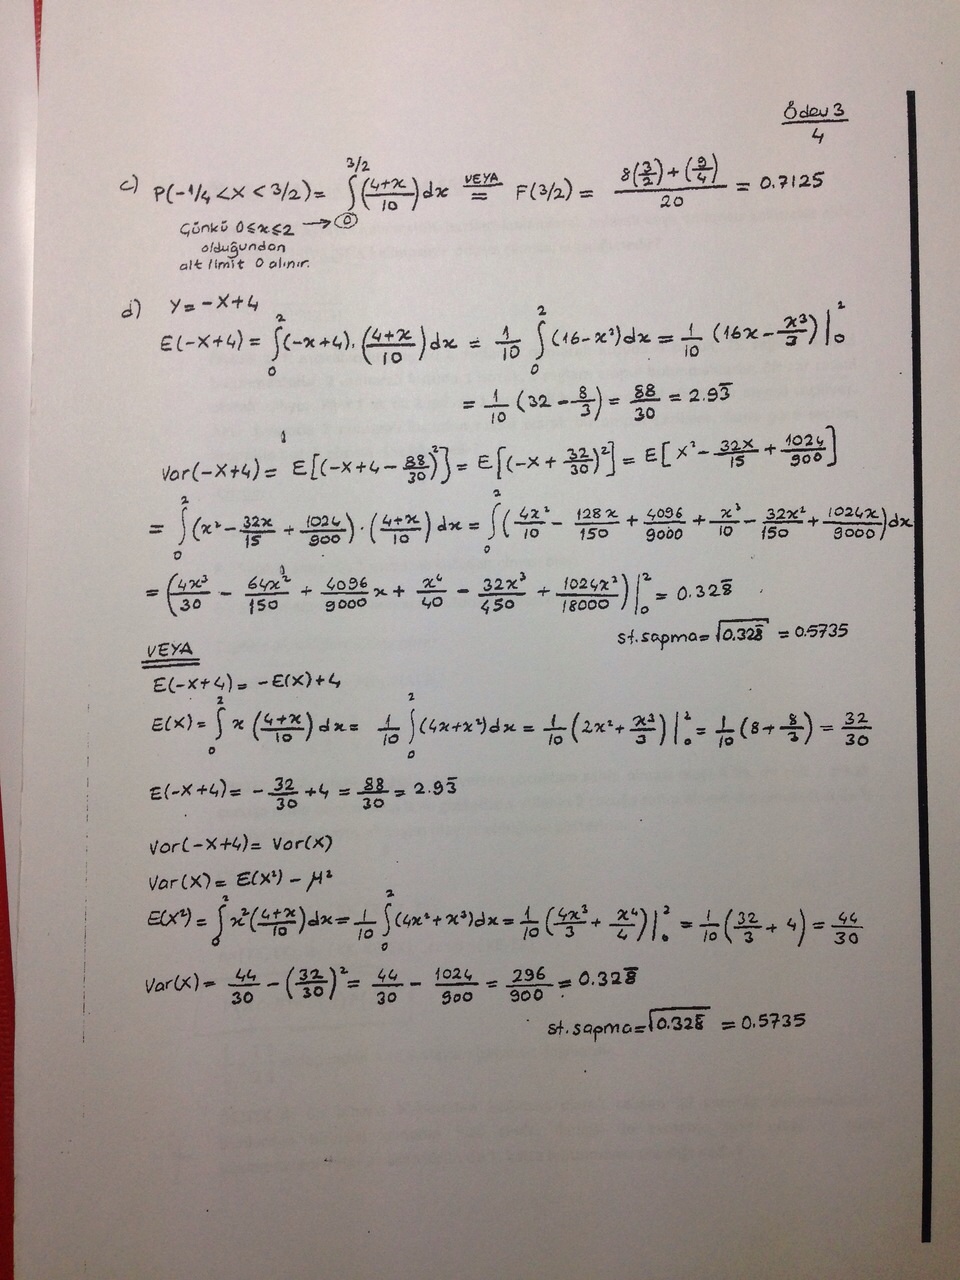 Ödev 3
4
c) P(-1/4 < X < 3/2) = ∫₀^{3/2} ((4+x)/10) dx =(VEYA) F(3/2) = (8(3/2) + (9/4))/20 = 0.7125
Çünkü 0 ≤ x ≤ 2 → 0
olduğundan
alt limit 0 alınır.
d) Y = -X+4
E(-X+4) = ∫₀² (-x+4).((4+x)/10) dx = 1/10 ∫₀² (16-x²) dx = 1/10 (16x - x³/3)|₀²
= 1/10 (32 - 8/3) = 88/30 = 2.93̅
Var(-X+4) = E[(-X+4 - 88/30)²] = E[(-X + 32/30)²] = E[X² - 32X/15 + 1024/900]
= ∫₀² (x² - 32x/15 + 1024/900).((4+x)/10) dx = ∫₀² (4x²/10 - 128x/150 + 4096/9000 + x³/10 - 32x²/150 + 1024x/9000) dx
= (4x³/30 - 64x²/150 + 4096/9000 x + x⁴/40 - 32x³/450 + 1024x²/18000)|₀² = 0.328̅
st.sapma = √0.328̅ = 0.5735
VEYA
E(-X+4) = -E(X)+4
E(X) = ∫₀² x ((4+x)/10) dx = 1/10 ∫₀² (4x+x²) dx = 1/10 (2x² + x³/3)|₀² = 1/10 (8 + 8/3) = 32/30
E(-X+4) = -32/30 + 4 = 88/30 = 2.93̅
Var(-X+4) = Var(X)
Var(X) = E(X²) - μ²
E(X²) = ∫₀² x²((4+x)/10) dx = 1/10 ∫₀² (4x²+x³) dx = 1/10 (4x³/3 + x⁴/4)|₀² = 1/10 (32/3 + 4) = 44/30
Var(X) = 44/30 - (32/30)² = 44/30 - 1024/900 = 296/900 = 0.328̅
st.sapma = √0.328̅ = 0.5735